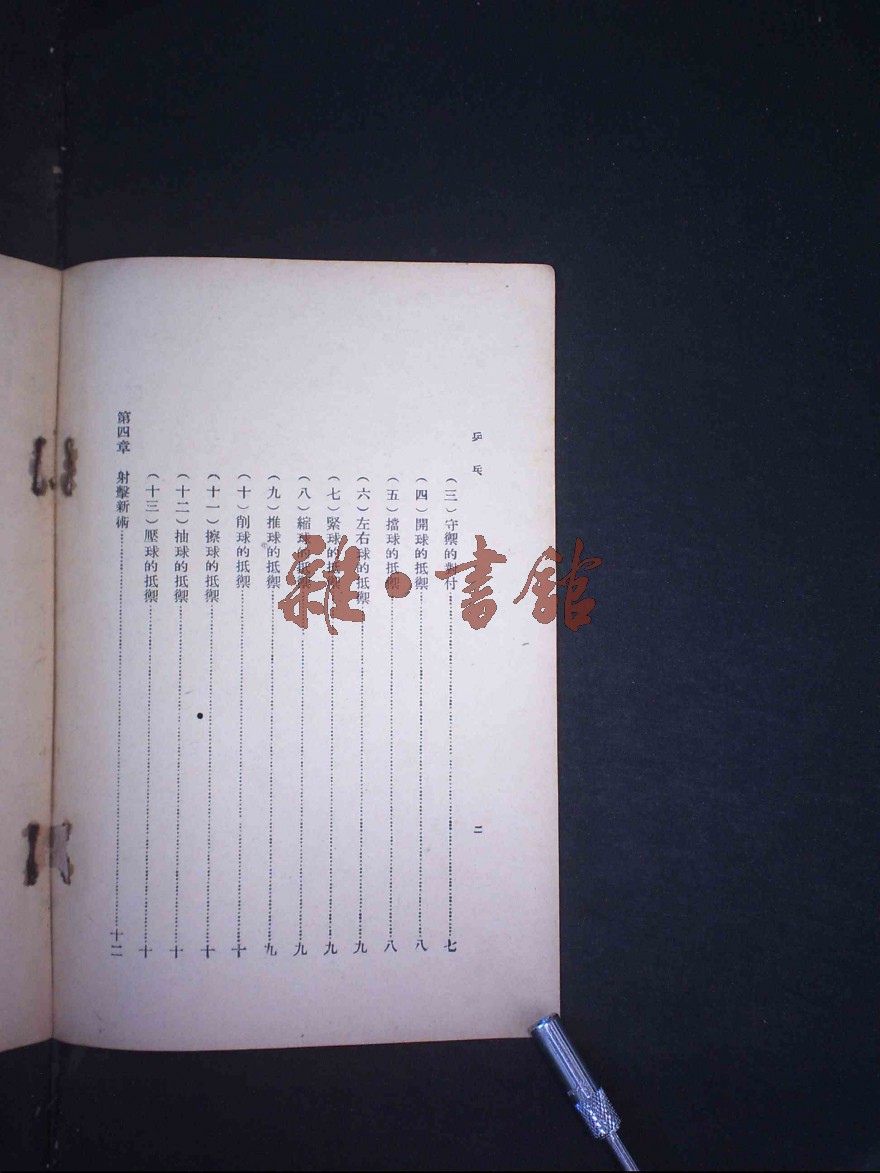 乒乓
二
（三）守禦的對付……七
（四）開球的抵禦……八
（五）擋球的抵禦……八
（六）左右球的抵禦……九
（七）緊球的抵禦……九
（八）縮球的抵禦……九
（九）推球的抵禦……九
（十）削球的抵禦……十
（十一）擦球的抵禦……十
（十二）抽球的抵禦……十
（十三）壓球的抵禦……十
第四章　射擊新術……十二
雜·書館